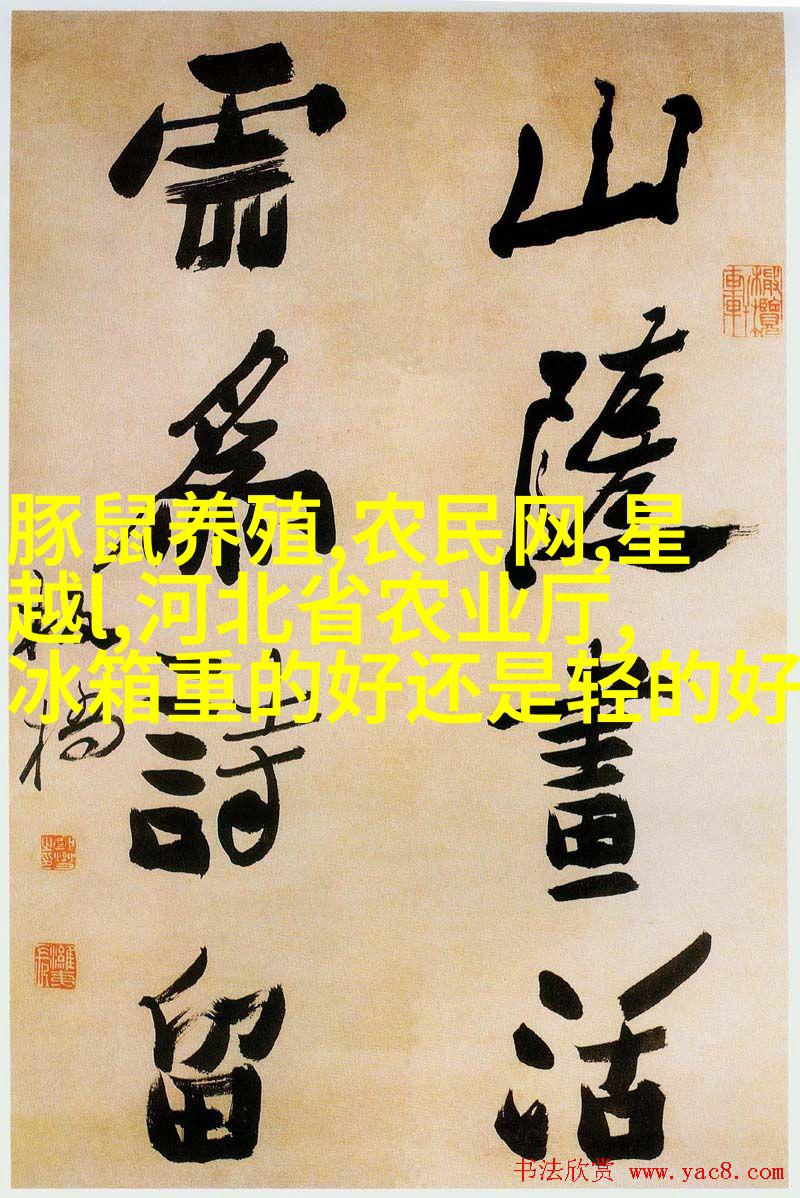 山隨畫活
雲為詩留
板橋
豚鼠养殖,农民网,星
越l,河北省农业厅,
冰箱重的好还是轻的好
书法欣赏 www.yac8.com